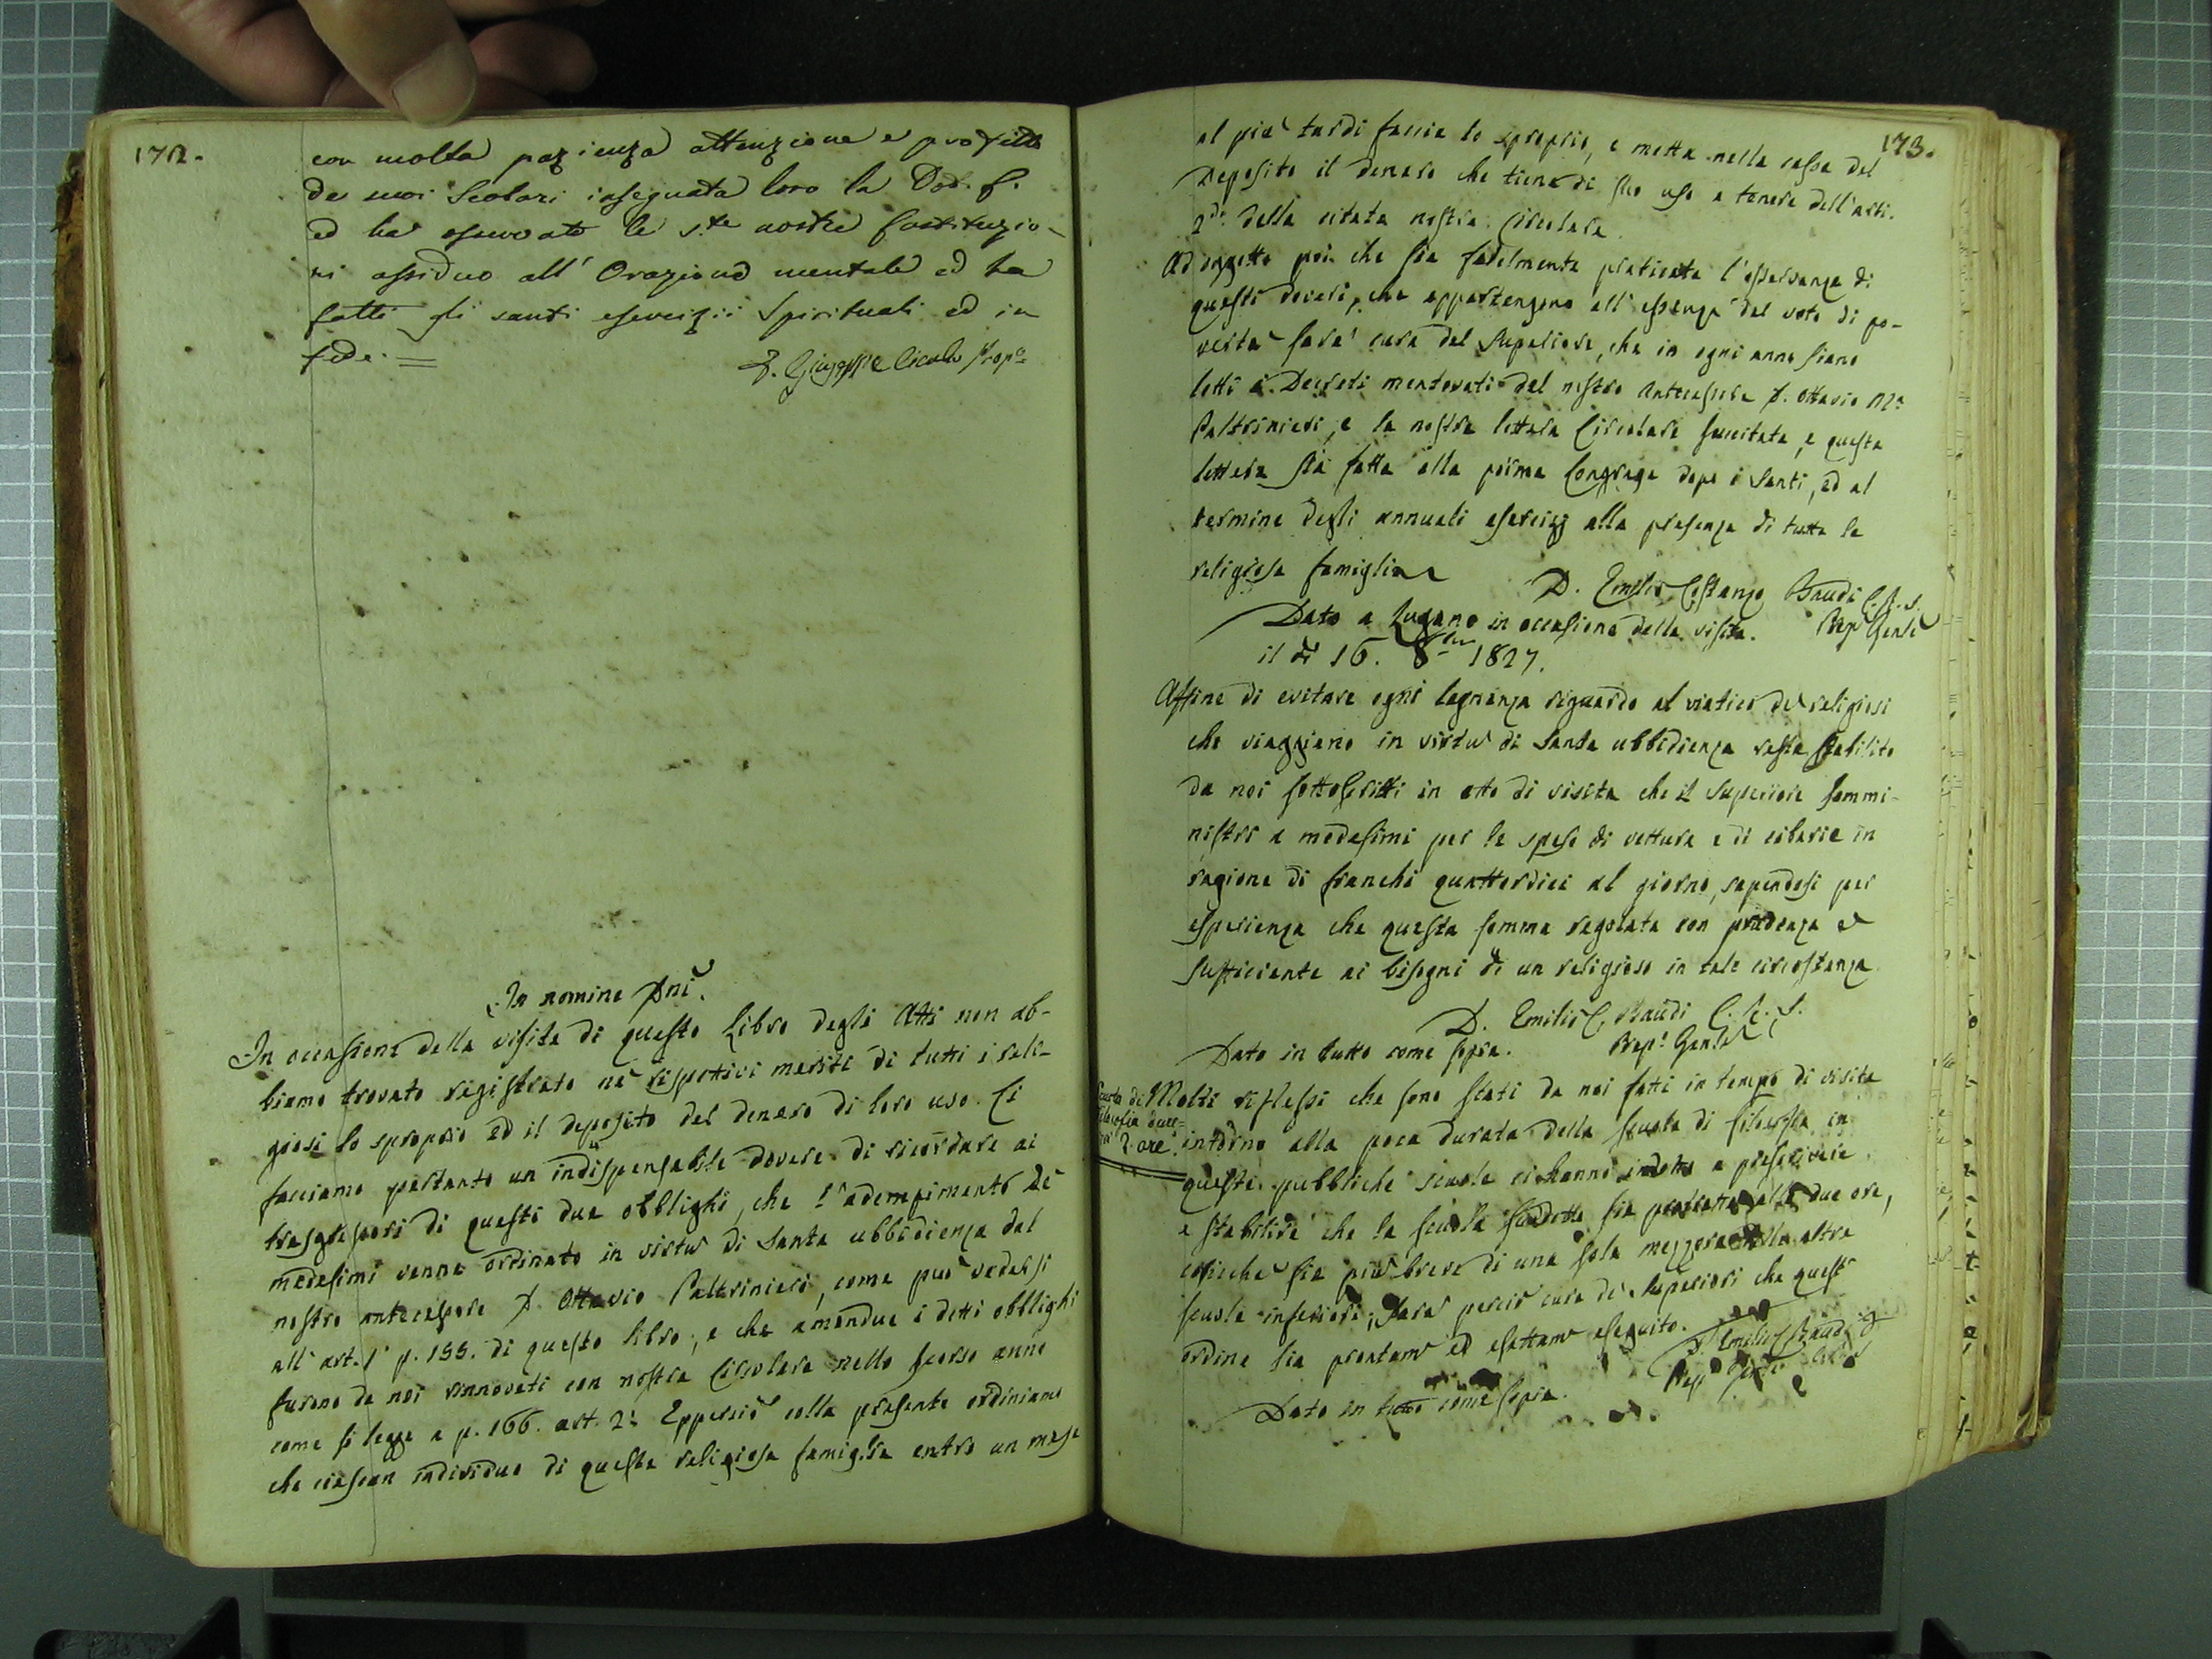 172.
con molta pazienza attenzione e profitto
de suoi Scolari insegnata loro la Dot. C.
ed ha osservato le s.te nostre Costituzio-
ni assiduo all' Orazione mentale ed ha
fatti gli santi esercizii Spirituali ed in
fede. =
D. Giuseppe Cicala Prep.o
In nomine Dni.
In occasione della visita di questo Libro degli Atti non ab-
biamo trovato registrato ne' rispettivi meriti di tutti i reli-
giosi lo sproprio ed il deposito del denaro di loro uso. Ci
facciamo pertanto un indispensabile dovere di ricordare ai
trasgressori di questi due obblighi, che l'adempimento de'
medesimi venne ordinato in virtù di Santa ubbidienza dal
nostro antecessore D. Ottavio Paltrinieri, come può vedersi
all' art. 1° p. 155. di questo libro; e che amendue i detti obblighi
furono da noi rinnovati con nostra Circolare nello scorso anno
come si legge a p. 166. art. 2. Epperciò colla presente ordiniamo
che ciascun individuo di questa religiosa famiglia entro un mese
173.
al più tardi faccia lo sproprio, e metta nella cassa del
Deposito il denaro che tiene di suo uso a tenore dell'arti.
2do della citata nostra Circolare.
Ad oggetto poi che sia fedelmente praticata l'osservanza di
questi doveri, che appartengono all' essenza del voto di po-
vertà sarà cura del Superiore, che in ogni anno siano
letti i Decreti mentovati del nostro Antecessore D. Ottavio Ma
Paltrinieri, e la nostra lettera Circolare succitata, e questa
lettera sia fatta alla prima Congrega dopo i Santi, ed al
termine degli annuali esercizj alla presenza di tutta la
religiosa famiglia
D. Emilio Costanzo Baudi C.R.S.
Dato a Lugano in occasione della visita. Prep Genle
il dì 16. 8bre 1827.
Affine di evitare ogni lagnanza riguardo al viatico de' religiosi
che viaggiano in virtù di Santa ubbidienza resta stabilito
da noi sottoscritti in atto di visita che il Superiore sommi-
nistri a medesimi per le spese di vettura e di cibarie in
ragione di franchi quattordici al giorno, sapendosi per
esperienza che questa somma regolata con prudenza è
sufficiente ai bisogni di un religioso in tale circostanza
D. Emilio C. Baudi C.R.S.
Dato in tutto come sopra. Prep. Genle
Scuola di
filosofia dure-
rà 2 ore.
Molti riflessi che sono stati da noi fatti in tempo di visita
intorno alla poca durata della scuola di filosofia in
queste pubbliche scuole ci hanno indotto a prescrivere
e stabilire che la scuola suddetta sia protratta alle due ore,
cosicche sia più breve di una sola mezzora delle altre
scuole inferiori; Sarà perciò cura de' Superiori che quest'
ordine sia prontam.e ed esattam.e eseguito.
D. Emilio C. Baudi
Prep. Genle
Dato in tutto come sopra.